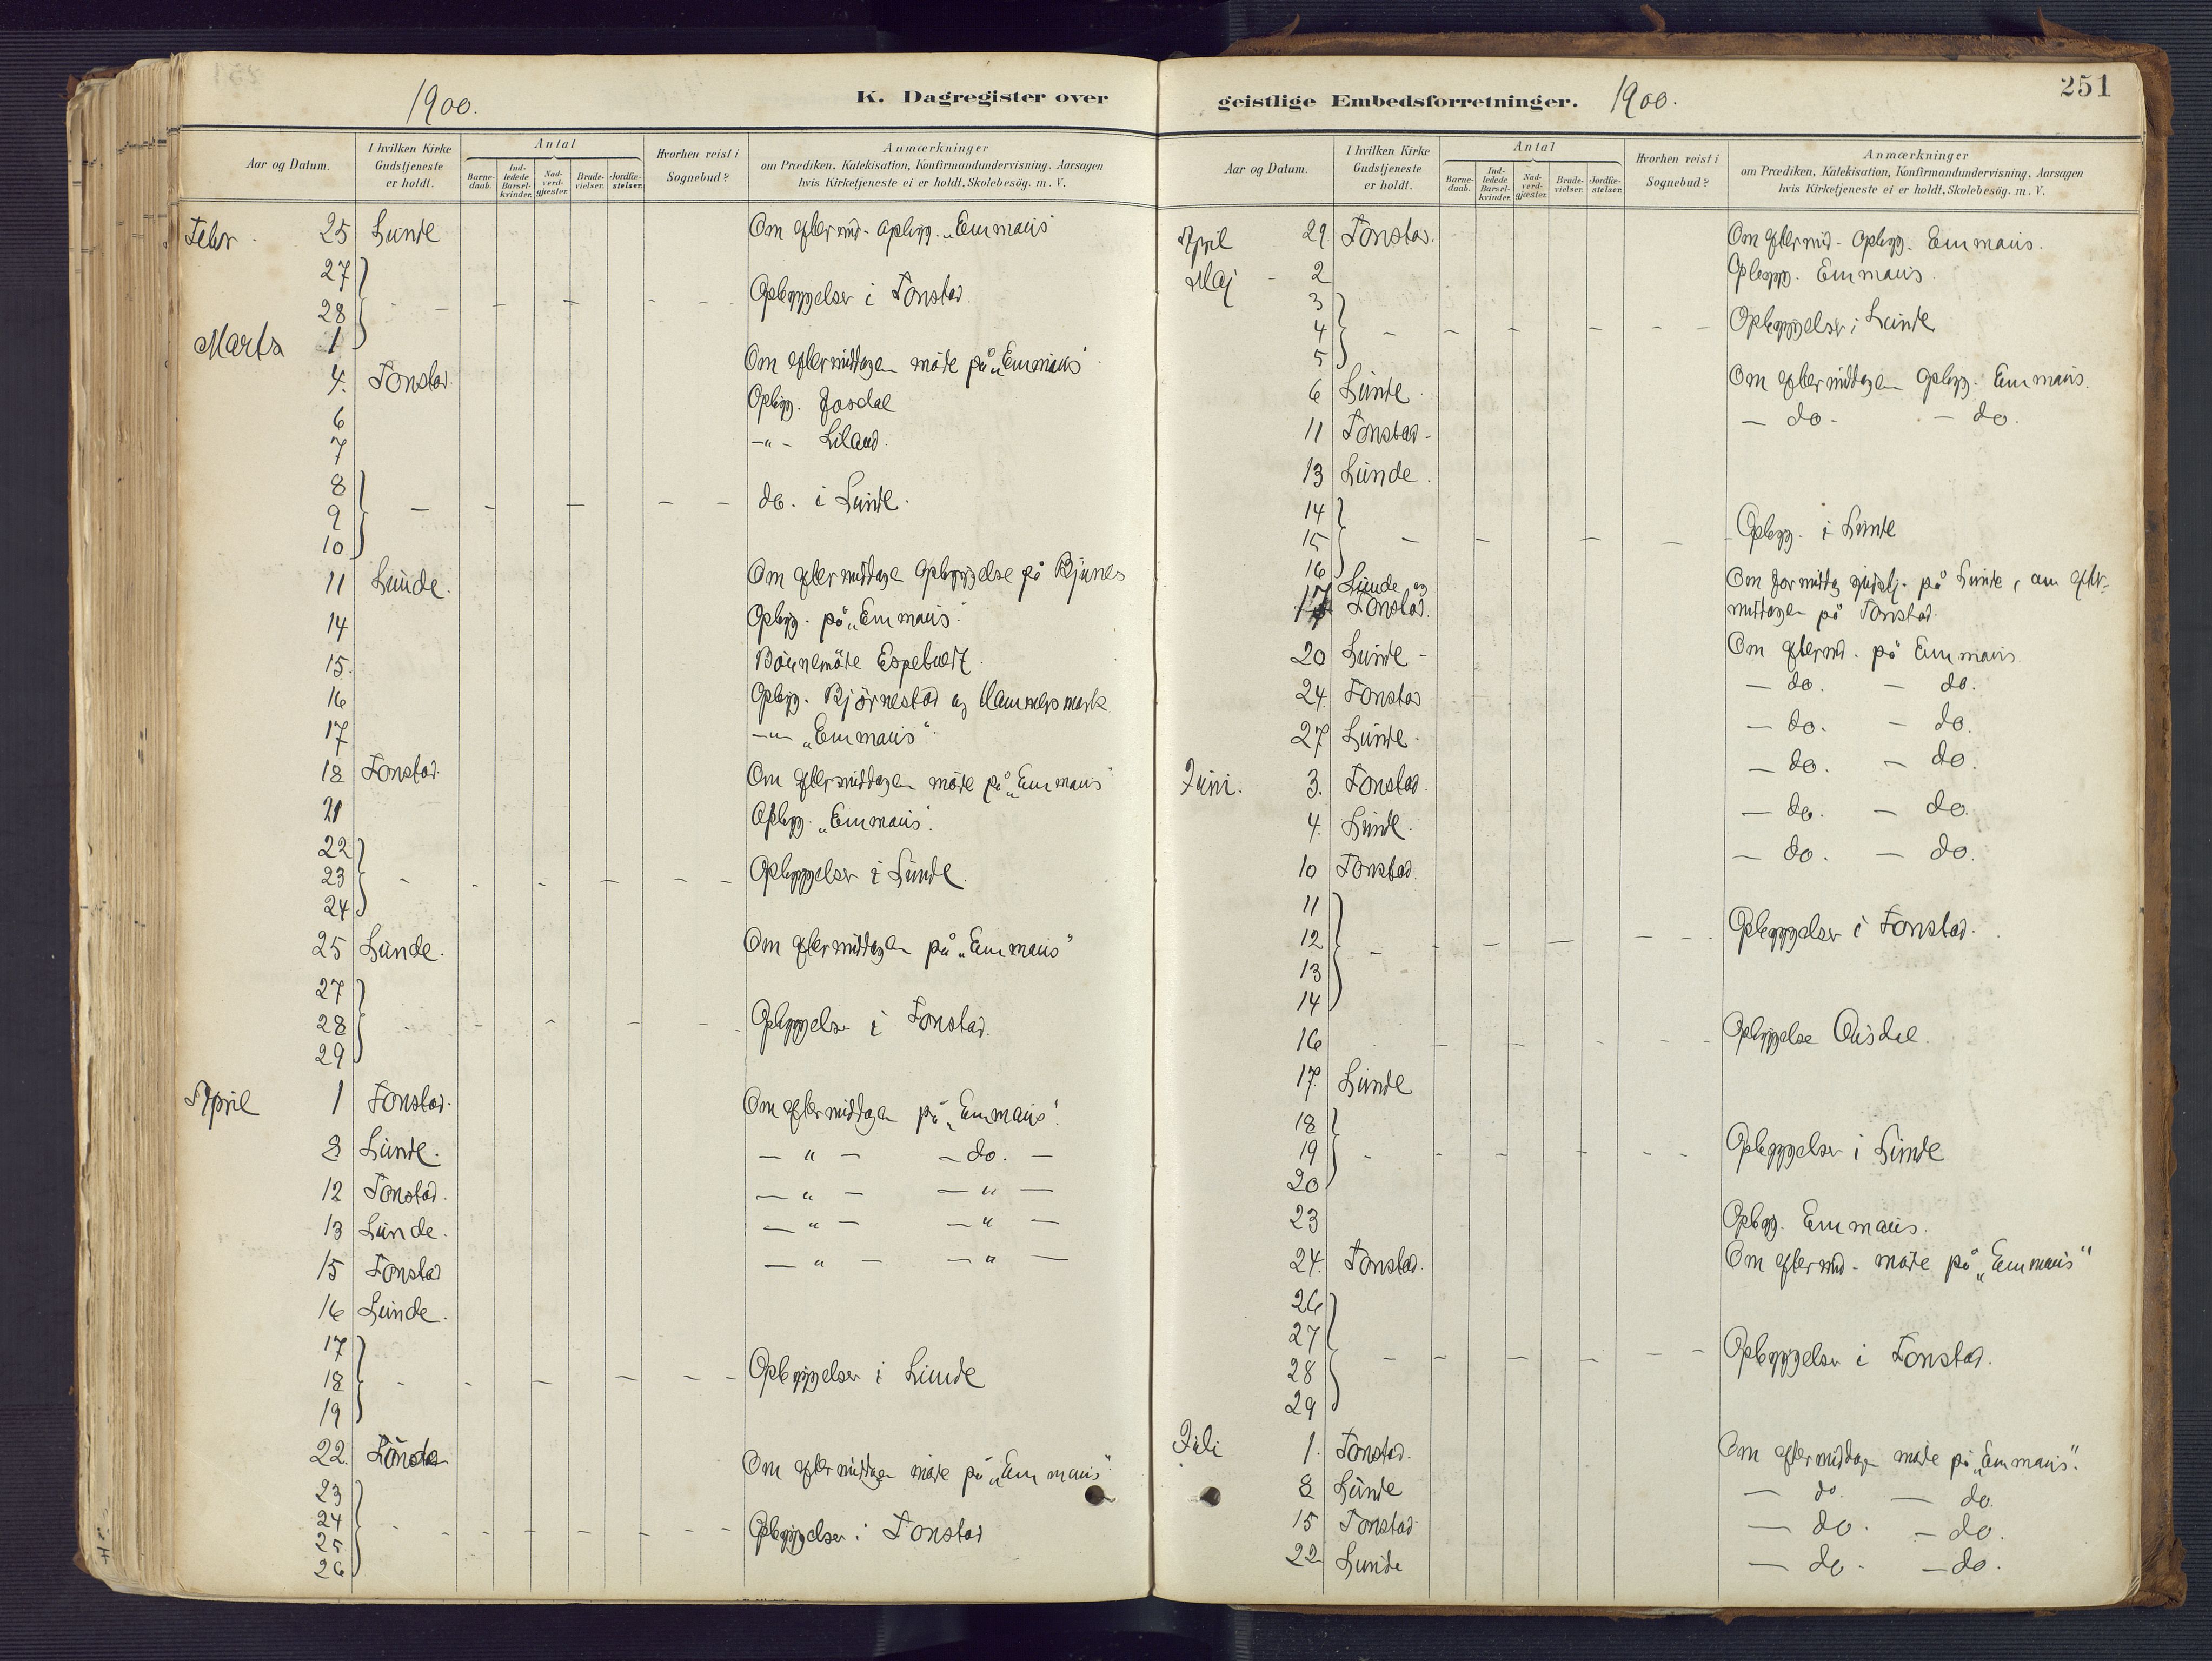 1900.
K. Dagregister over
Aar og Datum.
I hvilken Kirke Gudstjeneste er holdt.
Antal
Barne-daab.
Ind-ledede Barsel-kvinder.
Nad-verd-gjæster.
Brude-vielser.
Jordfæ-stelser.
Hvorhen reist i Sognebud?
Anmærkninger
om Prædiken, Katekisation, Konfirmandundervisning, Aarsagen
hvis Kirketjeneste ei er holdt, Skolebesøg. m. V.
Febr. 25 Lunde Om eftermid. opbygg. „Emmaus"
27
28 Opbyggelser i Tonstad.
Marts 1
4. Tonstad. Om eftermiddagen møde på „Emmaus"
6 Opbyg. Josdal
7 -"- Liland.
8
9 do. i Lunde.
10
11 Lunde. Om eftermiddagen opbyggelse på Bjunes
14 Opbyg. på „Emmaus"
15. Espetvedt
16 Opbyg. Bjørnestad og Hammersmark.
17 -"- „Emmaus"
18 Tonstad. Om eftermiddagen møde på „Emmaus"
21 Opbyg. „Emmaus".
22
23 Opbyggelser i Lunde.
24
25 Lunde. Om eftermiddagen på „Emmaus"
27
28 Opbyggelser i Tonstad.
29
April 1 Tonstad. Om eftermiddagen på „Emmaus".
8 Lunde. — " — — do. —
12 Tonstad. — " — — " —
13 Lunde. — " — — " —
15 Tonstad — " — — " —
16 Lunde.
17
18 Opbyggelser i Lunde
19
22. Om eftermiddagen møde på „Emmaus"
23
24
25 Opbyggelser i Tonstad
26
251
geistlige Embedsforretninger. 1900.
Aar og Datum.
I hvilken Kirke Gudstjeneste er holdt.
Antal
Barne-daab.
Ind-ledede Barsel-kvinder.
Nad-verd-gjæster.
Brude-vielser.
Jordfæ-stelser.
Hvorhen reist i Sognebud?
Anmærkninger
om Prædiken, Katekisation, Konfirmandundervisning, Aarsagen
hvis Kirketjeneste ei er holdt, Skolebesøg. m. V.
April 29. Tonstad. Om eftermid. opbyg. Emmaus.
Maj - 2 Opbygg. Emmaus.
3
4 Opbyggelser i Lunde
5
6 Lunde. Om eftermiddagen opbyg. Emmaus.
11 Tonstad - — do - — do.
13 Lunde.
14
15 Opbyg. i Lunde
16
17 Lunde og Tonstad. Om formiddag gudstj. på Lunde, om efter-
middagen på Tonstad.
20 Lunde - Om eftermd. på Emmaus.
24. Tonstad — do. — do.
27 Lunde - — do. — do.
Juni. 3. Tonstad. — do. — do.
4. Lunde. — do. — do.
10 Tonstad. — do. — do.
11
12 Opbyggelser i Tonstad.
13
14
16 Opbyggelse Ousdal.
17. Lunde
18
19 Opbyggelser i Lunde
20
23 Opbyg. Emmaus.
24. Tonstad. Om eftermid. møde på „Emmaus"
26
27
28 Opbyggelser i Tonstad.
29
Juli 1. Tonstad. Om eftermiddagen møde på „Emmaus".
8 Lunde — do. — do.
15 Tonstad — do. — do.
22 Lunde — do. — do.